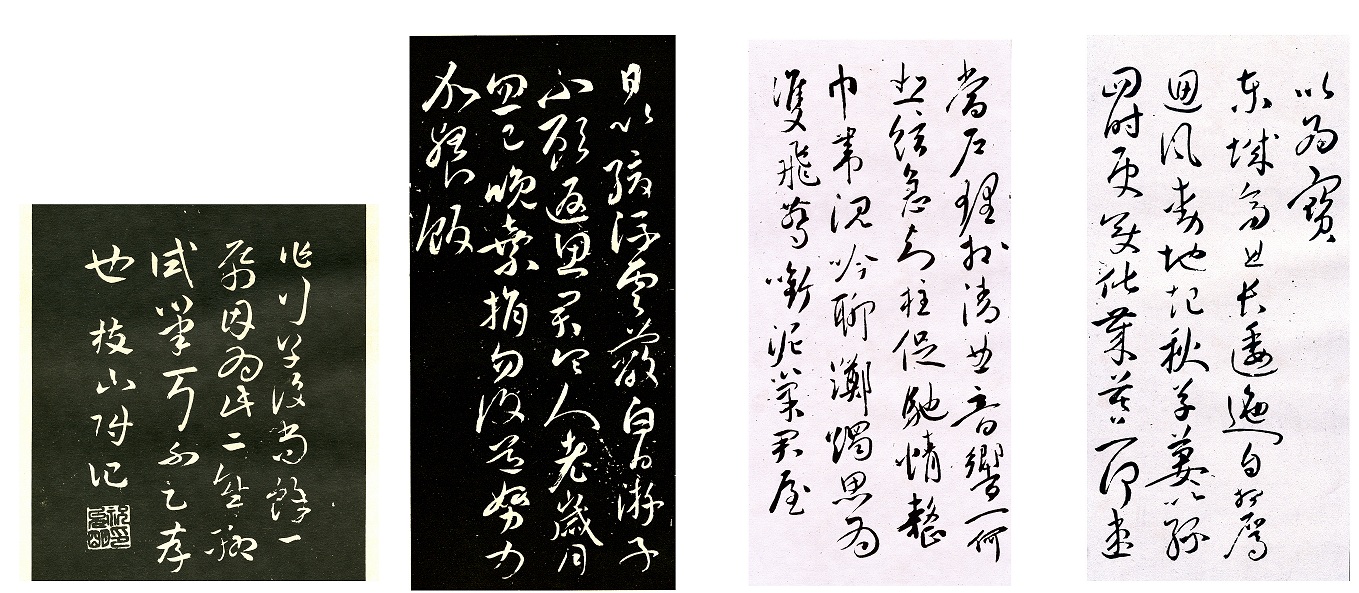 以為寶
東城高且長逶迤自相屬
迴風動地起秋草萋以綠
四時更變化歲暮一何速
當戶理清曲音響一何
悲絃急知柱促馳情整
巾帶沉吟聊躑躅思為
雙飛燕銜泥巢君屋
日以疏浮雲蔽白日游子
不顧返思君令人老歲月
忽已晚棄捐勿復道努力
加餐飯
作行草後尚餘一
因為此二聊
試筆耳不足存
也枝山附記